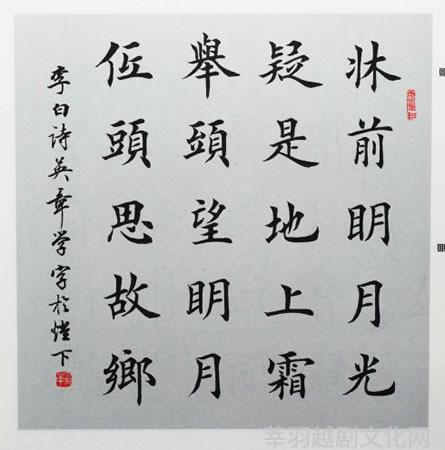 牀前明月光
疑是地上霜
舉頭望明月
低頭思故鄉
李白诗英章学字於燈下
莘羽越剧文化网